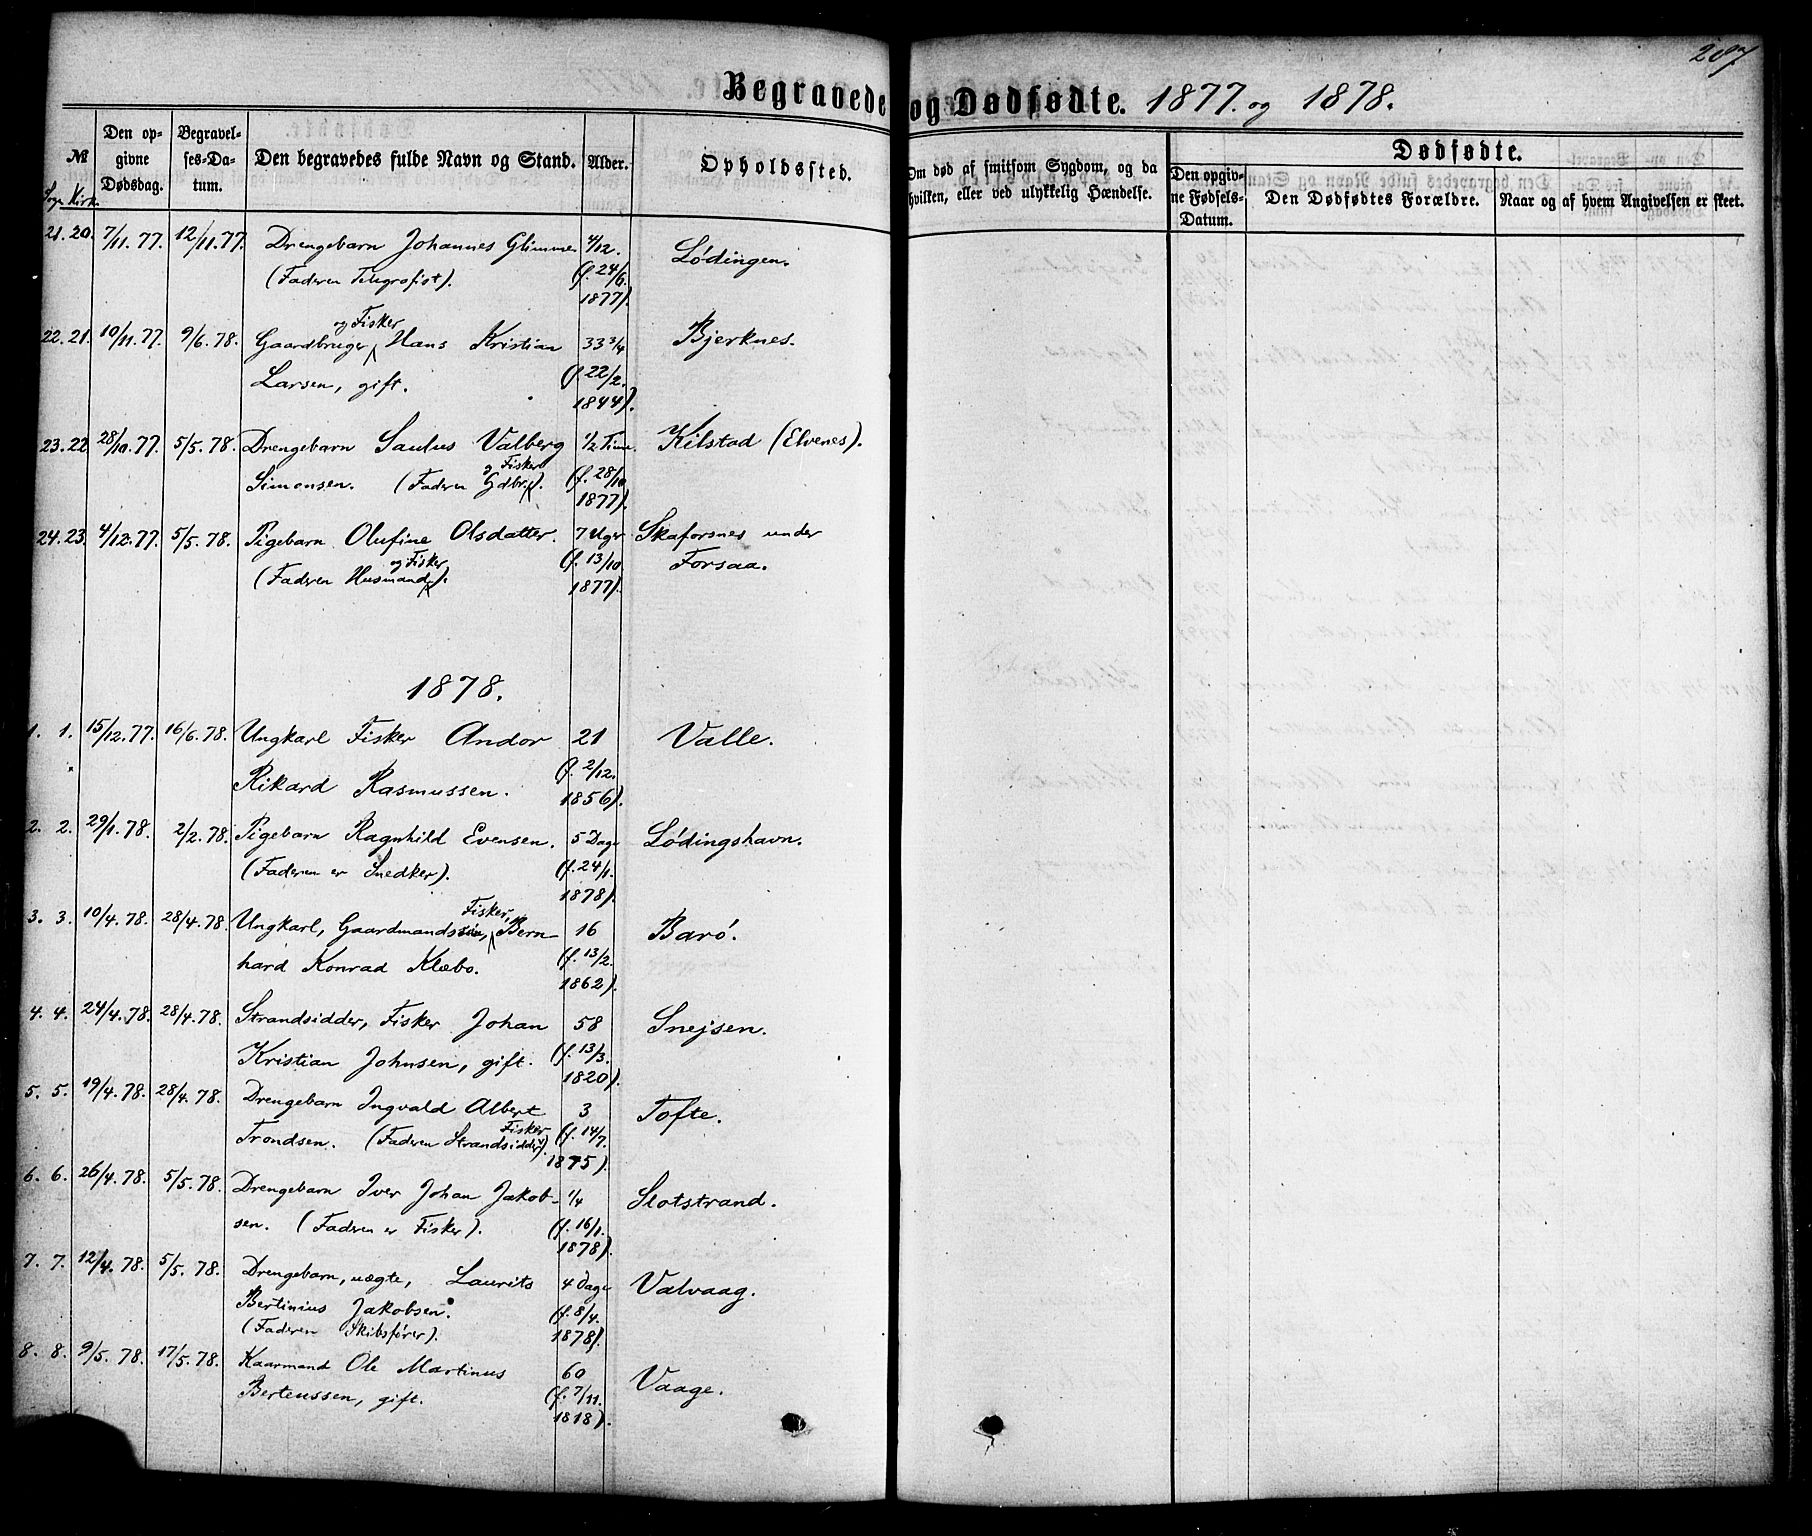 207
Begravede og Dødfødte. 1877. og 1878.
№
Sogn Kirk.
Den opgivne Dødsdag.
Begravelses-Datum.
Den begravedes fulde Navn og Stand.
Alder.
Opholdssted.
Om død af smitsom Sygdom, og da hvilken, eller ved ulykkelig Hændelse.
Dødfødte.
Den opgivne Fødsels-Datum.
Den Dødfødtes Forældre.
Naar og af hvem Angivelsen er skeet.
21. 20. 7/11. 77. 12/11. 77. Drengebarn Johannes Glimme 4/12. Lødingen.
(Faderen Telegrafist). (f. 24/6. 1877).
22. 21. 10/11. 77. 9/6. 78. Gaardbruger og Fisker Hans Kristian 33 3/4 Bjerknes.
Larsen, gift. (f. 22/2. 1844).
23. 22. 28/10. 77. 5/5. 78. Drengebarn Saulus Valberg 1/2 Time. Kilstad (Elvenes).
Simonsen. (Faderen Gdbr. og Fisker). (f. 28/10 1877).
24. 23. 4/12. 77. 5/5. 78. Pigebarn Olufine Olsdatter. 7 Uger Skaforsnes under
(Faderen Husmand og Fisker). (f. 13/10 1877). Forsaa.
1878.
1. 1. 15/12. 77. 16/6. 78. Ungkarl Fisker Andor 21 Valle.
Rikard Rasmussen. (f. 2/12. 1856).
2. 2. 29/1. 78. 2/2. 78. Pigebarn Ragnhild Evensen. 5 Dage Lødingshavn.
(Faderen er Snedker). (f. 24/1. 1878).
3. 3. 10/4. 78. 28/4. 78. Ungkarl, Gaardmandssøn, Fisker, Bern- 16 Barø.
hard Konrad Klæbo. (f. 13/2. 1862).
4. 4. 24/4. 78. 28/4. 78. Strandsidder, Fisker Johan 58 Snejsen.
Kristian Johnsen, gift. (f. 13/3. 1820).
5. 5. 19/4. 78. 28/4. 78. Drengebarn Ingvald Albert 3 Tofte.
Trondsen. (Faderen Strandsidder Fisker). (f. 14/7. 1875).
6. 6. 26/4. 78. 5/5. 78. Drengebarn Iver Johan Jakob- 1/4 Slotstrand.
sen. (Faderen er Fisker). (f. 16/1. 1878).
7. 7. 12/4. 78. 5/5. 78. Drengebarn, uægte, Laurits 4 Dage Valvaag.
Bertinius Jakobsen. (f. 8/4. 1878).
(Faderen Skibsfører).
8. 8. 9/5. 78. 17/5. 78. Kaarmand Ole Martinus 60 Vaage.
Berteussen, gift. (f. 7/11. 1818).